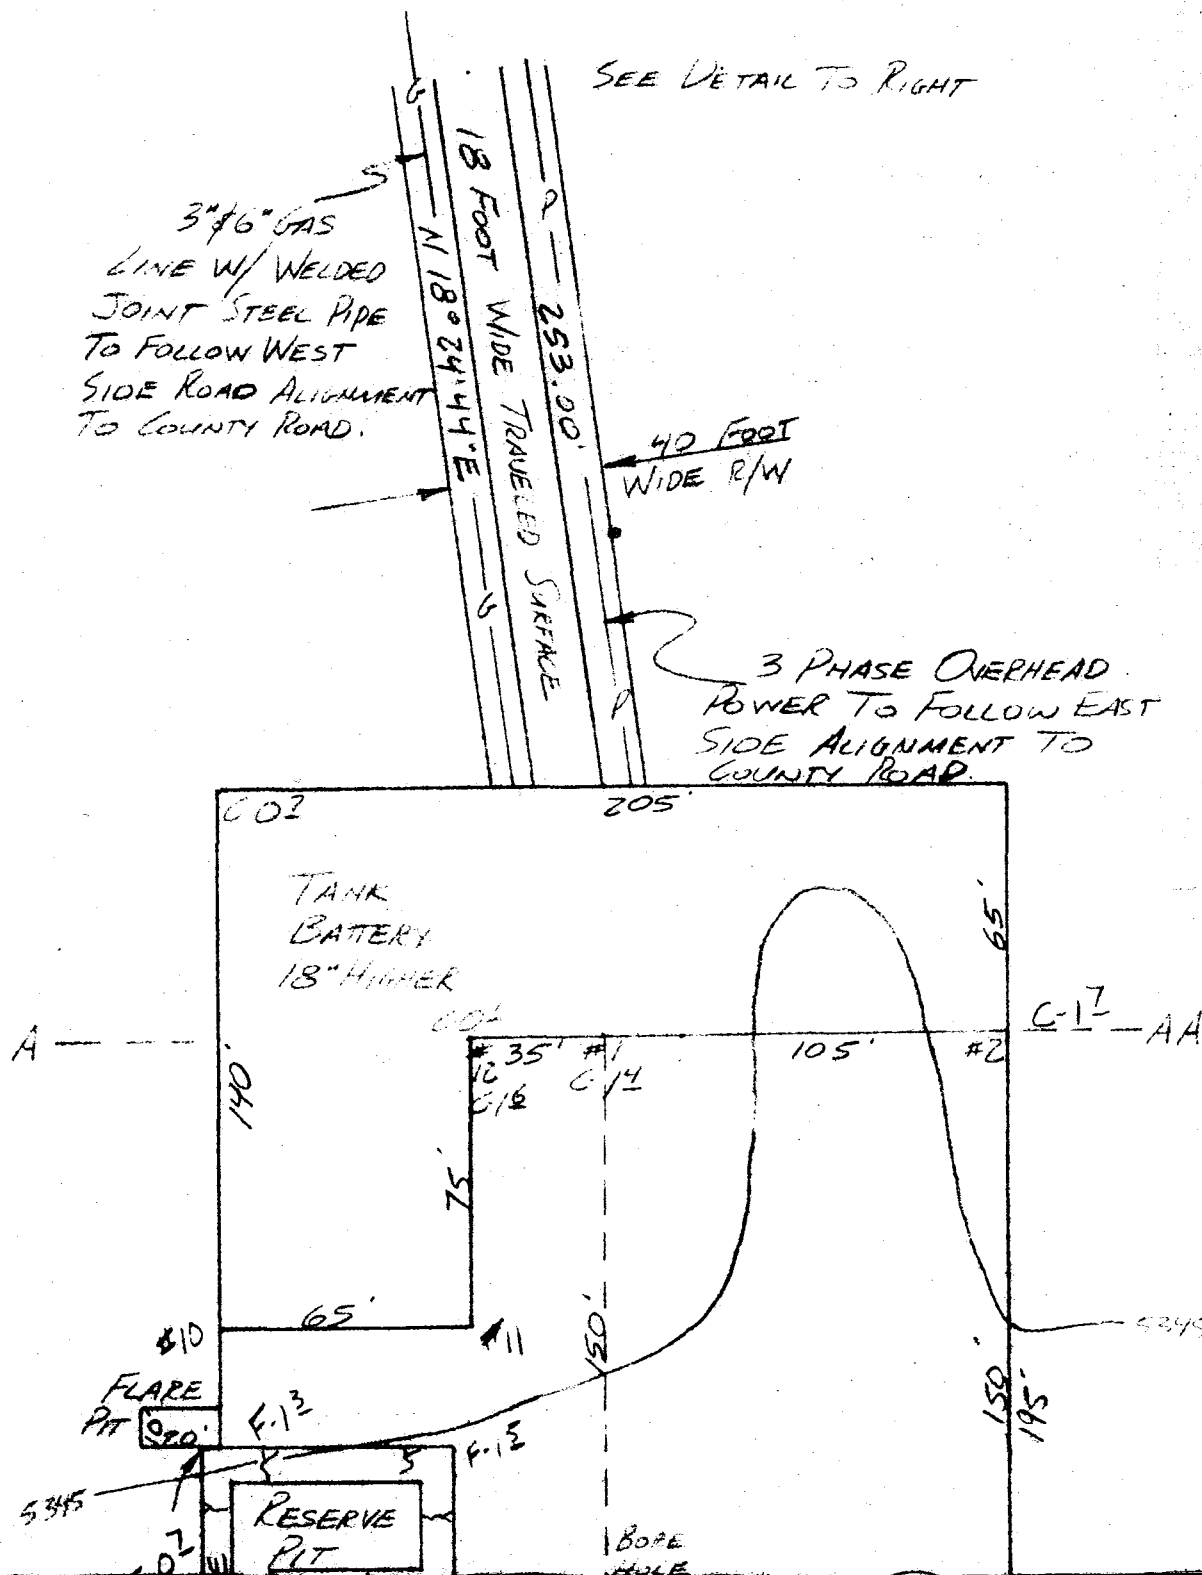 SEE DETAIL TO RIGHT
3" & 6" GAS
LINE W/ WELDED
JOINT STEEL PIPE
TO FOLLOW WEST
SIDE ROAD ALIGNMENT
TO COUNTY ROAD.
G
N 18° 24' 44" E
G
18 FOOT WIDE TRAVELED SURFACE
P
253.00'
P
40 FOOT
WIDE R/W
3 PHASE OVERHEAD
POWER TO FOLLOW EAST
SIDE ALIGNMENT TO
COUNTY ROAD.
205'
TANK
BATTERY
18" HIGHER
65'
A
C-1 7
AA
#
12
35'
#1
C-1 4
105'
#2
140'
75'
65'
#10
#11
150'
5345
FLARE
PIT
F-1 3
F-1 5
150'
195'
5345
RESERVE
PIT
BORE
HOLE